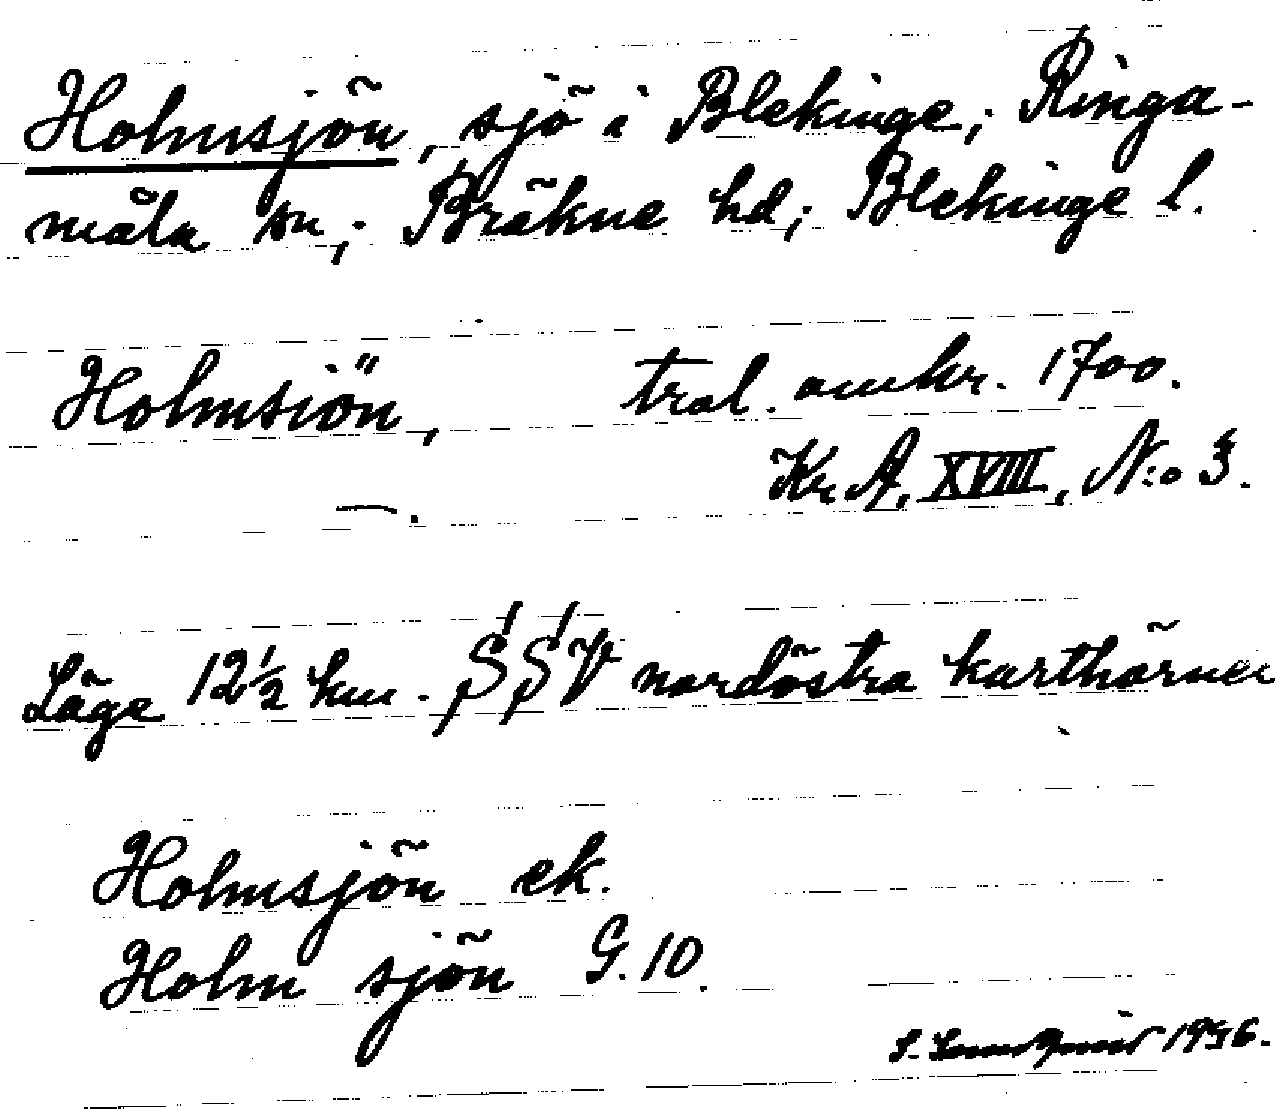 Holmsjön, sjö i Blekinge; Ringa-
måla sn; Bräkne hd; Blekinge l.
Holmsiön, trol. omkr. 1700.
Kr. A. XVIII, N:o 3.
Läge 12½ km. SSV nordöstra karthörnet
Holmsjön ek.
Holm sjön G. 10.
S. 1946.